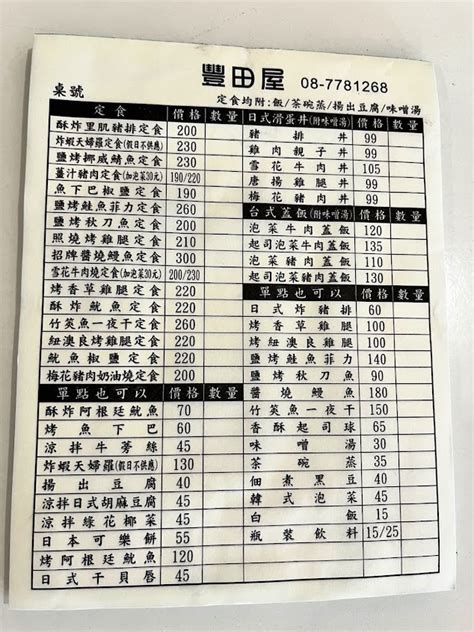 豐田屋 08-7781268
桌號
定食均附:飯/茶碗蒸/揚出豆腐/味噌湯
定食 價格 數量
酥炸里肌豬排定食 200
炸蝦天婦羅定食(假日不供應) 230
鹽烤挪威鯖魚定食 230
薑汁豬肉定食(加泡菜30元) 190/220
魚下巴椒鹽定食 190
鹽烤鮭魚菲力定食 260
鹽烤秋刀魚定食 210
照燒烤雞腿定食 210
招牌醬燒鰻魚定食 300
雪花牛肉燒定食(加泡菜30元) 200/230
烤香草雞腿定食 220
酥炸魷魚定食 220
竹筴魚一夜干定食 260
紐澳良烤雞腿定食 220
魷魚椒鹽定食 220
梅花豬肉奶油燒定食 220
單點也可以 價格 數量
酥炸阿根廷魷魚 70
烤魚下巴 60
涼拌牛蒡絲 45
炸蝦天婦羅(假日不供應) 130
揚出豆腐 45
涼拌日式胡麻豆腐 45
涼拌綠花椰菜 45
日本可樂餅 55
烤阿根廷魷魚 120
日式干貝唇 45
日式滑蛋丼(附味噌湯) 價格 數量
豬排丼 99
雞肉親子丼 99
雪花牛肉丼 105
唐揚雞腿丼 99
梅花豬肉丼 99
台式蓋飯(附味噌湯) 價格 數量
泡菜牛肉蓋飯 120
起司泡菜牛肉蓋飯 135
泡菜豬肉蓋飯 110
起司泡菜豬肉蓋飯 130
單點也可以 價格 數量
日式炸豬排 60
烤香草雞腿 100
烤紐澳良雞腿 100
鹽烤鮭魚菲力 140
鹽烤秋刀魚 90
醬燒鰻魚 180
竹筴魚一夜干 150
香酥起司球 65
味噌湯 30
茶碗蒸 35
佃煮黑豆 40
韓式泡菜 45
白飯 15
瓶裝飲料 15/25